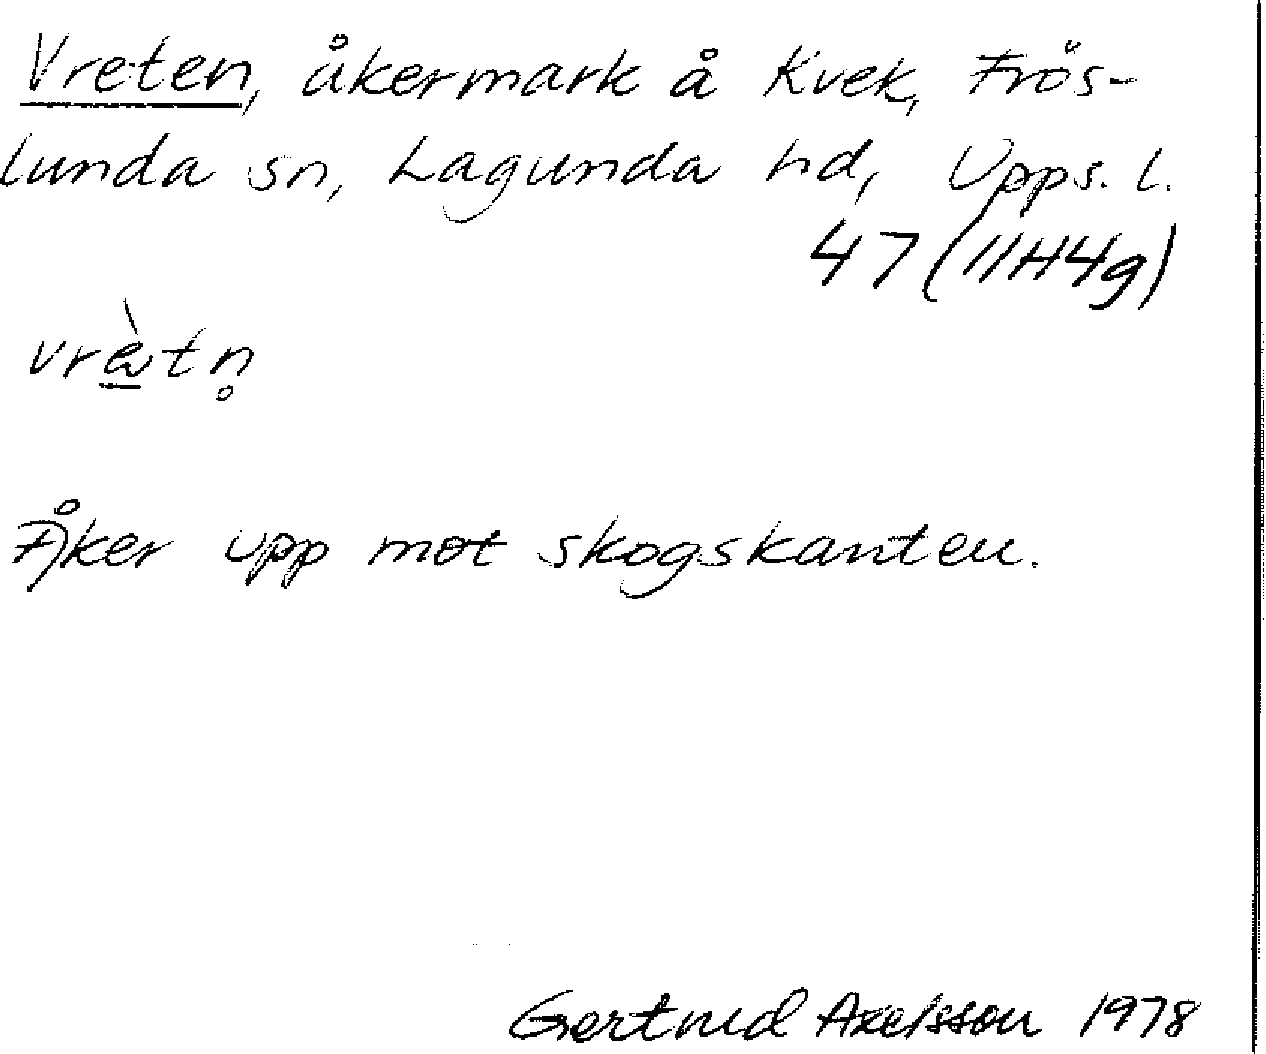 Vreten, åkermark å Kvek, Frös-
lunda sn, Lagunda hd, Upps. l.
47 (11H4g)
vræ̀tn̥
Åker upp mot skogskanten.
Gertrud Axelsson 1978